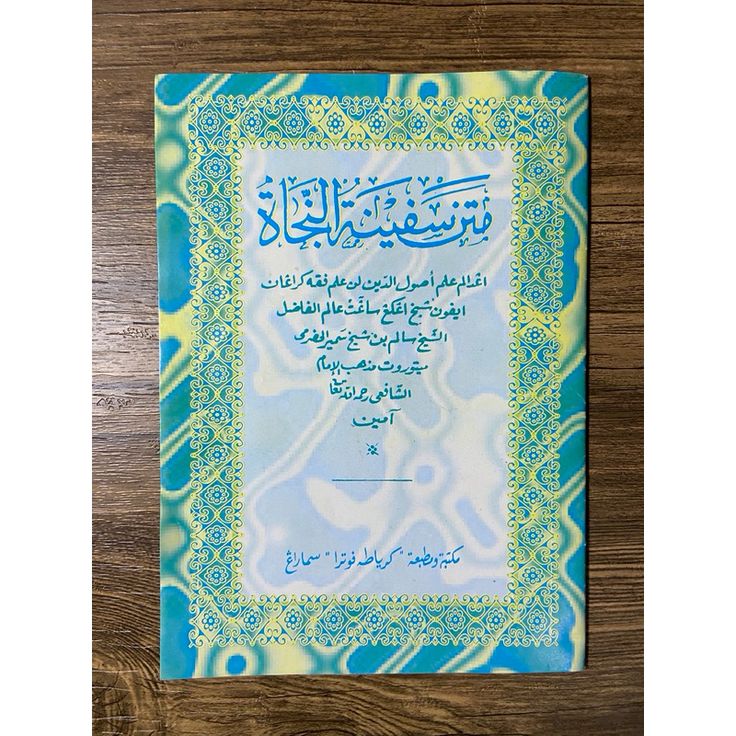 متن سفينة النجاة
اعدالم علم أصول الدين لن علم فقه كراعان
ايفون شيخ اڠكڠ ساڠت عالم الفاضل
الشيخ سالم بن شيخ سمير الحضرمى
ميتوروت مذهب الإمام
الشافعى رحمه الله تعالى
آمين
مكتبة ومطبعة "كرياطه فوترا" سماراڠ